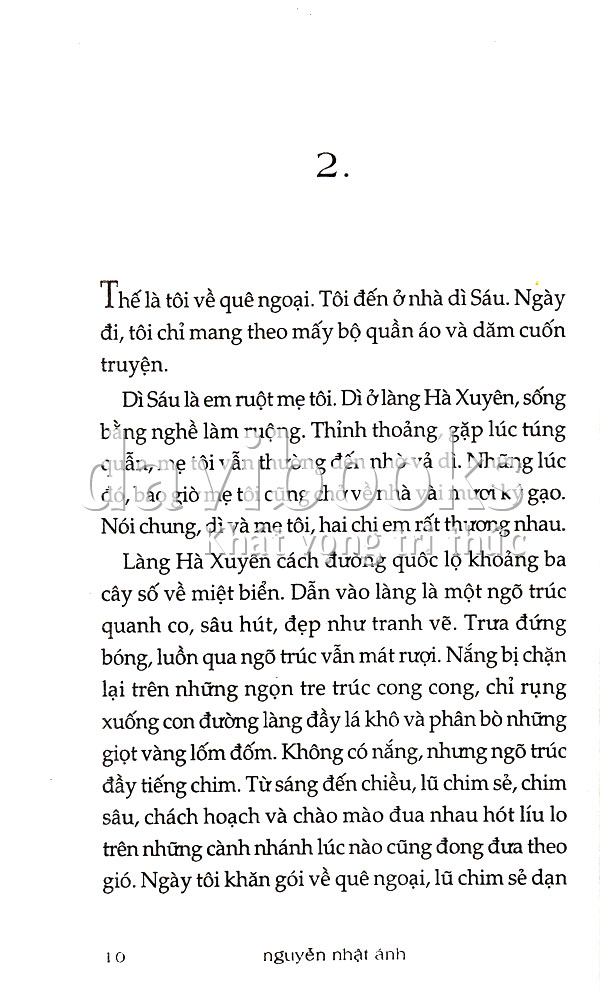 2.
Thế là tôi về quê ngoại. Tôi đến ở nhà dì Sáu. Ngày
đi, tôi chỉ mang theo mấy bộ quần áo và dăm cuốn
truyện.
Dì Sáu là em ruột mẹ tôi. Dì ở làng Hà Xuyên, sống
bằng nghề làm ruộng. Thỉnh thoảng, gặp lúc túng
quẫn, mẹ tôi vẫn thường đến nhờ vả dì. Những lúc
đó, bao giờ mẹ tôi cũng chở về nhà vài mươi ký gạo.
davibooks
Nói chung, dì và mẹ tôi, hai chị em rất thương nhau.
khát vọng tri thức
Làng Hà Xuyên cách đường quốc lộ khoảng ba
cây số về miệt biển. Dẫn vào làng là một ngõ trúc
quanh co, sâu hút, đẹp như tranh vẽ. Trưa đứng
bóng, luồn qua ngõ trúc vẫn mát rượi. Nắng bị chặn
lại trên những ngọn tre trúc cong cong, chỉ rụng
xuống con đường làng đầy lá khô và phân bò những
giọt vàng lốm đốm. Không có nắng, nhưng ngõ trúc
đầy tiếng chim. Từ sáng đến chiều, lũ chim sẻ, chim
sâu, chách hoạch và chào mào đua nhau hót líu lo
trên những cành nhánh lúc nào cũng đong đưa theo
gió. Ngày tôi khăn gói về quê ngoại, lũ chim sẻ dạn
10 nguyễn nhật ánh